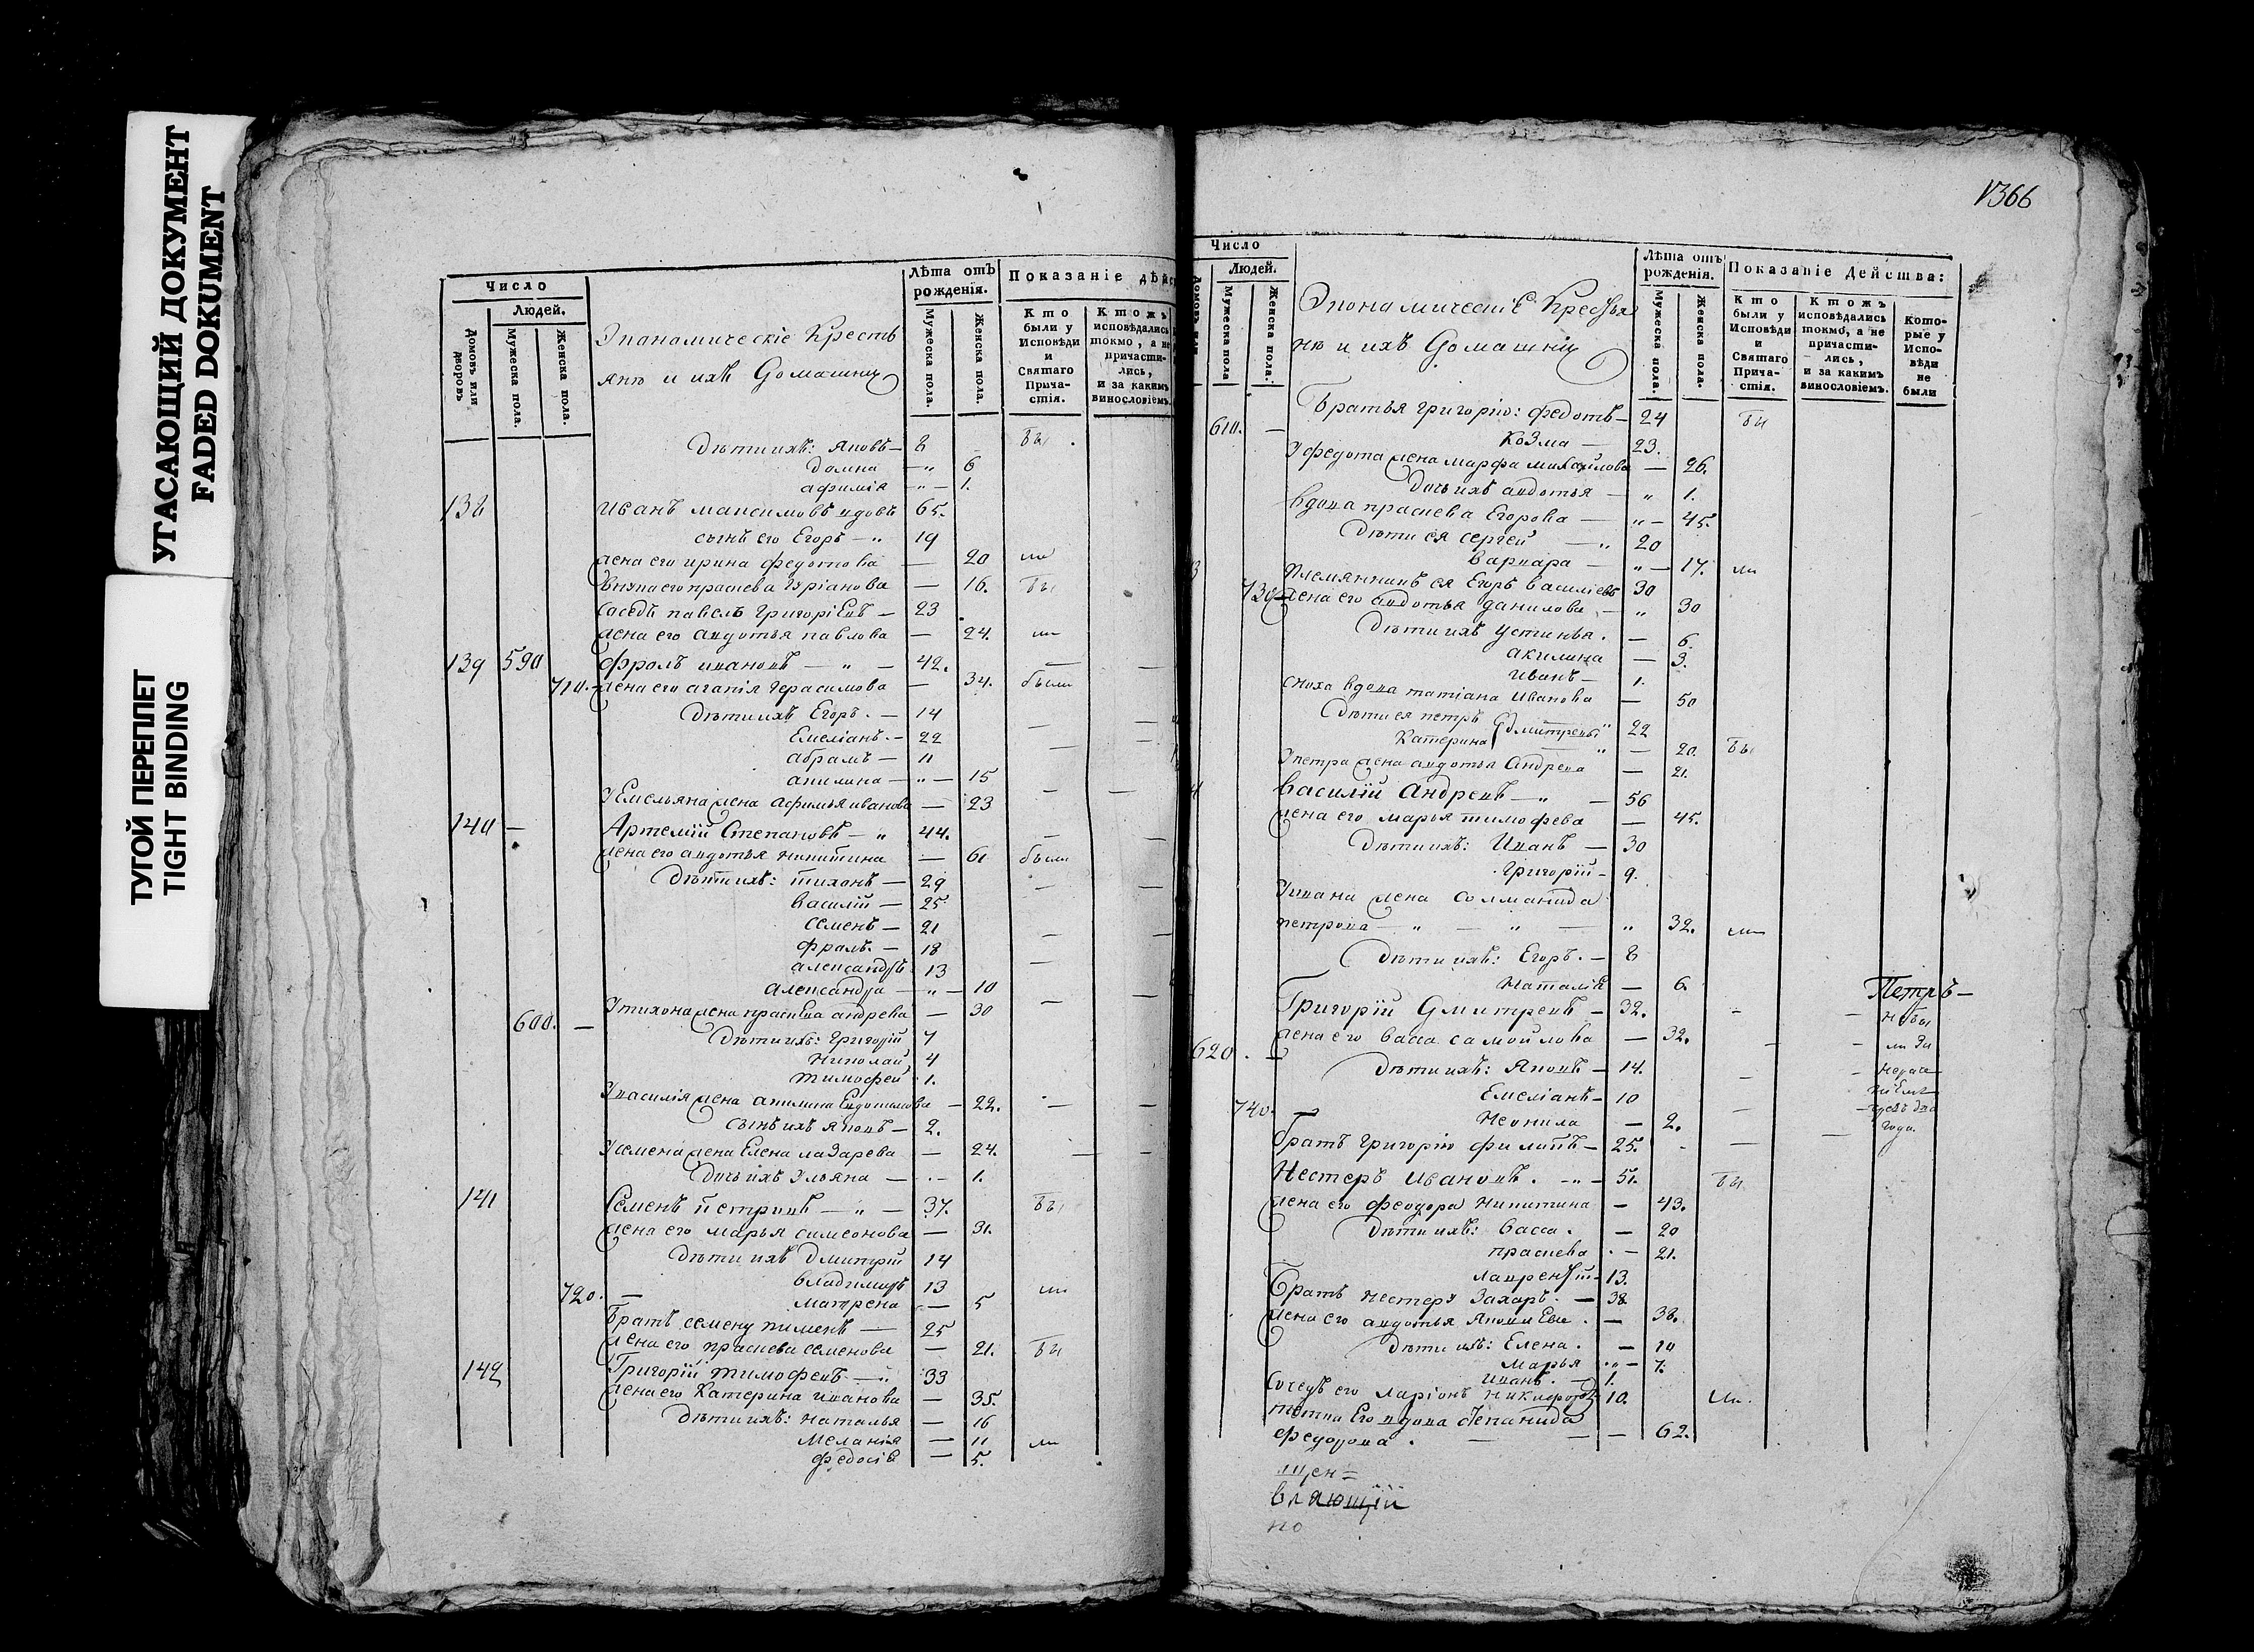 УГАСАЮЩИЙ ДОКУМЕНТ
FADED DOKUMENT
ТУГОЙ ПЕРЕПЛЕТ
TIGHT BINDING
Число
Людей.
Домовъ или дворовъ
Мужеска пола.
Женска пола.
Экономическіе Кресть
яне и ихъ Домашніи
Лѣта отъ рожденія.
Мужеска пола.
Женска пола.
Показаніе дѣйс
Кто были у Исповѣди и Святаго Прича- стія.
Ктожъ исповѣдались токмо, а не причасти- лись, и за какимъ винословіемъ.
Дѣти ихъ: Яковъ — 8 бы
домна — „ 6
афимія — „ — 1.
138 Иванъ максимовъ вдовъ 65.
сынъ его Егоръ — „ 19
жена его ирина федотова — 20 ли
внука его праскева — 16. бы
Соседъ павелъ григоріевъ — 23
жена его авдотья павлова — 24. ли
139 590 фролъ ивановъ — „ — 42.
710. — жена его агапія герасимова — 34. были
Дѣти ихъ Егоръ. — 14
Емеліанъ. — 22
абрамъ — 11
акилина — „ — 15
У Емельяна жена афимья иванова — 23
140 — Артемій Степановъ — „ 44.
жена его авдотья никитина — 61 были
Дѣти ихъ: тихонъ — 29
василій — 25
семенъ — 21
фролъ. — 18
александръ 13
александра — „ — 10
У тихона жена праскева андрева — 30
600. — Дѣти ихъ: григорій 7
николай 4
тимофей 1.
У василія жена акилина — 22.
сынъ ихъ яковъ — 2.
У семена жена Елена лазарева — 24.
Дочь ихъ Ульяна — 1.
141 Семенъ петровъ — „ — 37. бы
жена его марья симеонова — 31.
Дѣти ихъ Дмитрій 14
владимиръ 13 ли
720. — матрена — 5
Братъ семену пименъ — 25
жена его праскева семенова — 21. бы
142 Григорій тимофевъ — „ 33
жена его катерина иванова — 35.
Дѣти ихъ: наталья — 16
меланія — 11 ли
федосія — 5.
1366
Число
Людей.
Мужеска пола
Женска пола.
Экономическіе Кресья
не и ихъ Домашніи
Лѣта отъ рожденія.
Мужеска пола.
Женска пола.
Показаніе дѣйства:
Кто были у Исповѣди и Святаго Прича- стія.
Ктожъ исповѣдались токмо, а не причасти- лись, и за какимъ винословіемъ.
Кото- рые у Испо- вѣди не были
610. — Братья григорію: федотъ — 24 бы
козма — 23.
У федота жена марфа михайлова — 26.
Дочь ихъ авдотья — „ 1.
вдова праскева Егорова — „ — 45.
Дѣти ея сергей — „ 20
варвара — „ — 17. ли
племянникъ ея Егоръ василіевъ 30
730 — жена его авдотья данилова — „ 30
Дѣти ихъ устинья. — 6.
акилина — 3.
иванъ — 1.
сноха вдова татіана Иванова — 50
Дѣти ея петръ дмитревы 22
катерина „ — 20. бы
У петра жена авдотья Андрева — 21.
василій Андревъ — „ — 56
жена его марья тимофева — 45.
Дѣти ихъ: Иванъ — 30
григорій — 9.
У ивана жена соломанида
петрова — „ — „ — „ 32. ли
Дѣти ихъ: Егоръ. — 8
наталія — 6.
Григорій Дмитревъ — 32.
жена его васса самойлова — 32.
620. — Дѣти ихъ: Яковъ — 14.
Емеліанъ — 10
740. — неонила — 2.
Братъ григорію филипъ — 25.
Петръ —
не бы
ли за
года.
Нестеръ Ивановъ. — „ — 51. бы
жена его феодора никитина — 43.
Дѣти ихъ: васса. — 20
праскева — 21.
лаврентій — 13.
Братъ нестеру захаръ. — 38
жена его авдотья — 38.
Дѣти ихъ: Елена. — 10
марья — „ — 7.
иванъ. — 1.
Соседъ его ларіонъ никифоровъ 10. ли.
тетка Его вдова степанида
федорова. — — — 62.
щен=
вляющій
по